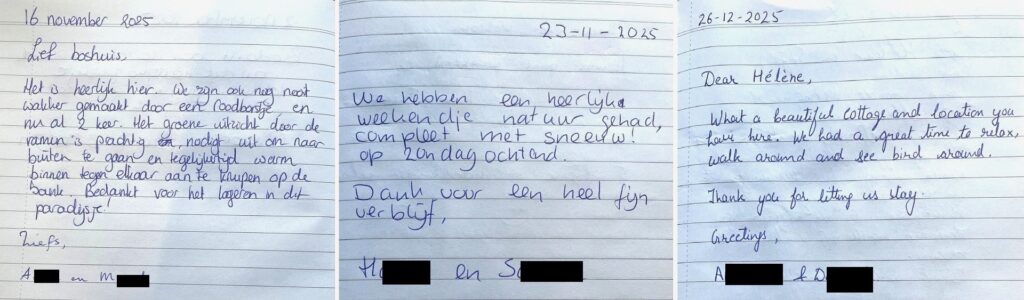 16 november 2025
Lief boshuis,
Het is heerlijk hier. We zijn ook nog nooit
wakker gemaakt door een roodborstje, en
nu al 2 keer. Het groene uitzicht door de
ramen is prachtig en nodigt uit om naar
buiten te gaan en tegelijkertijd warm
binnen tegen elkaar aan te kruipen op de
bank. Bedankt voor het logeren in dit
paradijsje!
Liefs,
A en M
23-11-2025
We hebben een heerlijk
weekendje natuur gehad,
compleet met sneeuw!
op zondagochtend.
Dank voor een heel fijn
verblijf,
H en S
26-12-2025
Dear Hélène,
What a beautiful cottage and location you
have here. We had a great time to relax,
walk around and see bird around.
Thank you for letting us stay
Greetings,
A & D